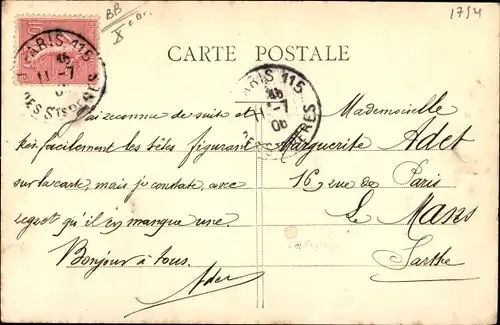 1754
BB
CARTE POSTALE
PARIS 115
11 -7
PARIS 115
11 -7
06
J'ai reconnu de suite et
très facilement les têtes figurant
sur la carte, mais je constate, avec
regret qu'il en manque une.
Bonjour à tous.
Mademoiselle
Marguerite Adet
16 rue de Paris
Le Mans
Sarthe